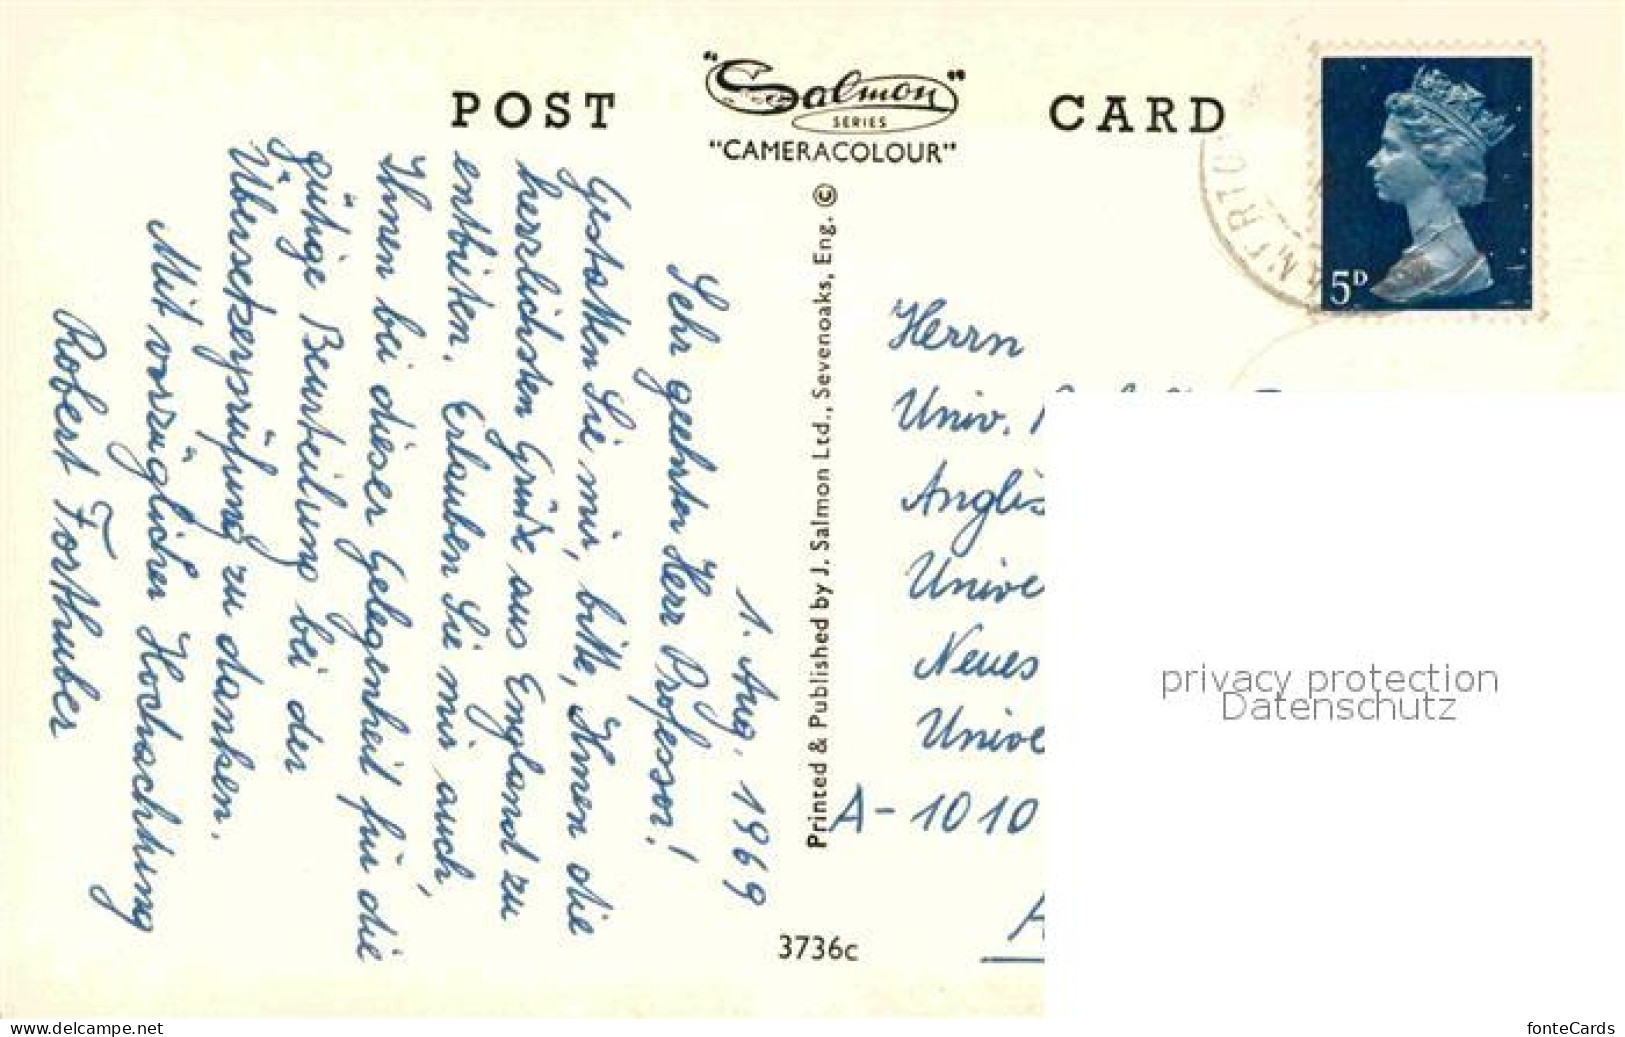 POST CARD
"Salmon"
SERIES
"CAMERACOLOUR"
5D
1. Aug. 1969
Sehr geehrter Herr Professor!
Gestatten Sie mir, bitte, Ihnen die
herzlichsten Grüße aus England zu
entbieten. Erlauben Sie mir auch,
Ihnen bei dieser Gelegenheit für die
gütige Beurteilung bei der
Übersetzerprüfung zu danken.
Mit vorzüglicher Hochachtung
Robert Forsthuber
Printed & Published by J. Salmon Ltd., Sevenoaks, Eng. ©
3736c
Herrn
Univ.
Anglis
Unive
Neues
Unive
A-1010
A
privacy protection
Datenschutz
www.delcampe.net
fonteCards